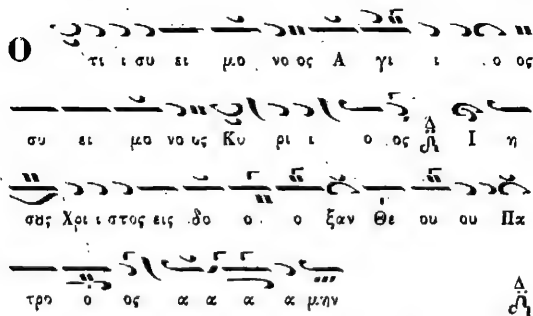 Ο τι ι συ ει μο νο ος Α γι ι ο ος
συ ει μο νο ος Κυ ρι ι ο ος Δ Ι η
σους Χρι ι στος εις δο ο ο ξαν Θε ου ου Πα
τρο ο ος α α α α μην Δ